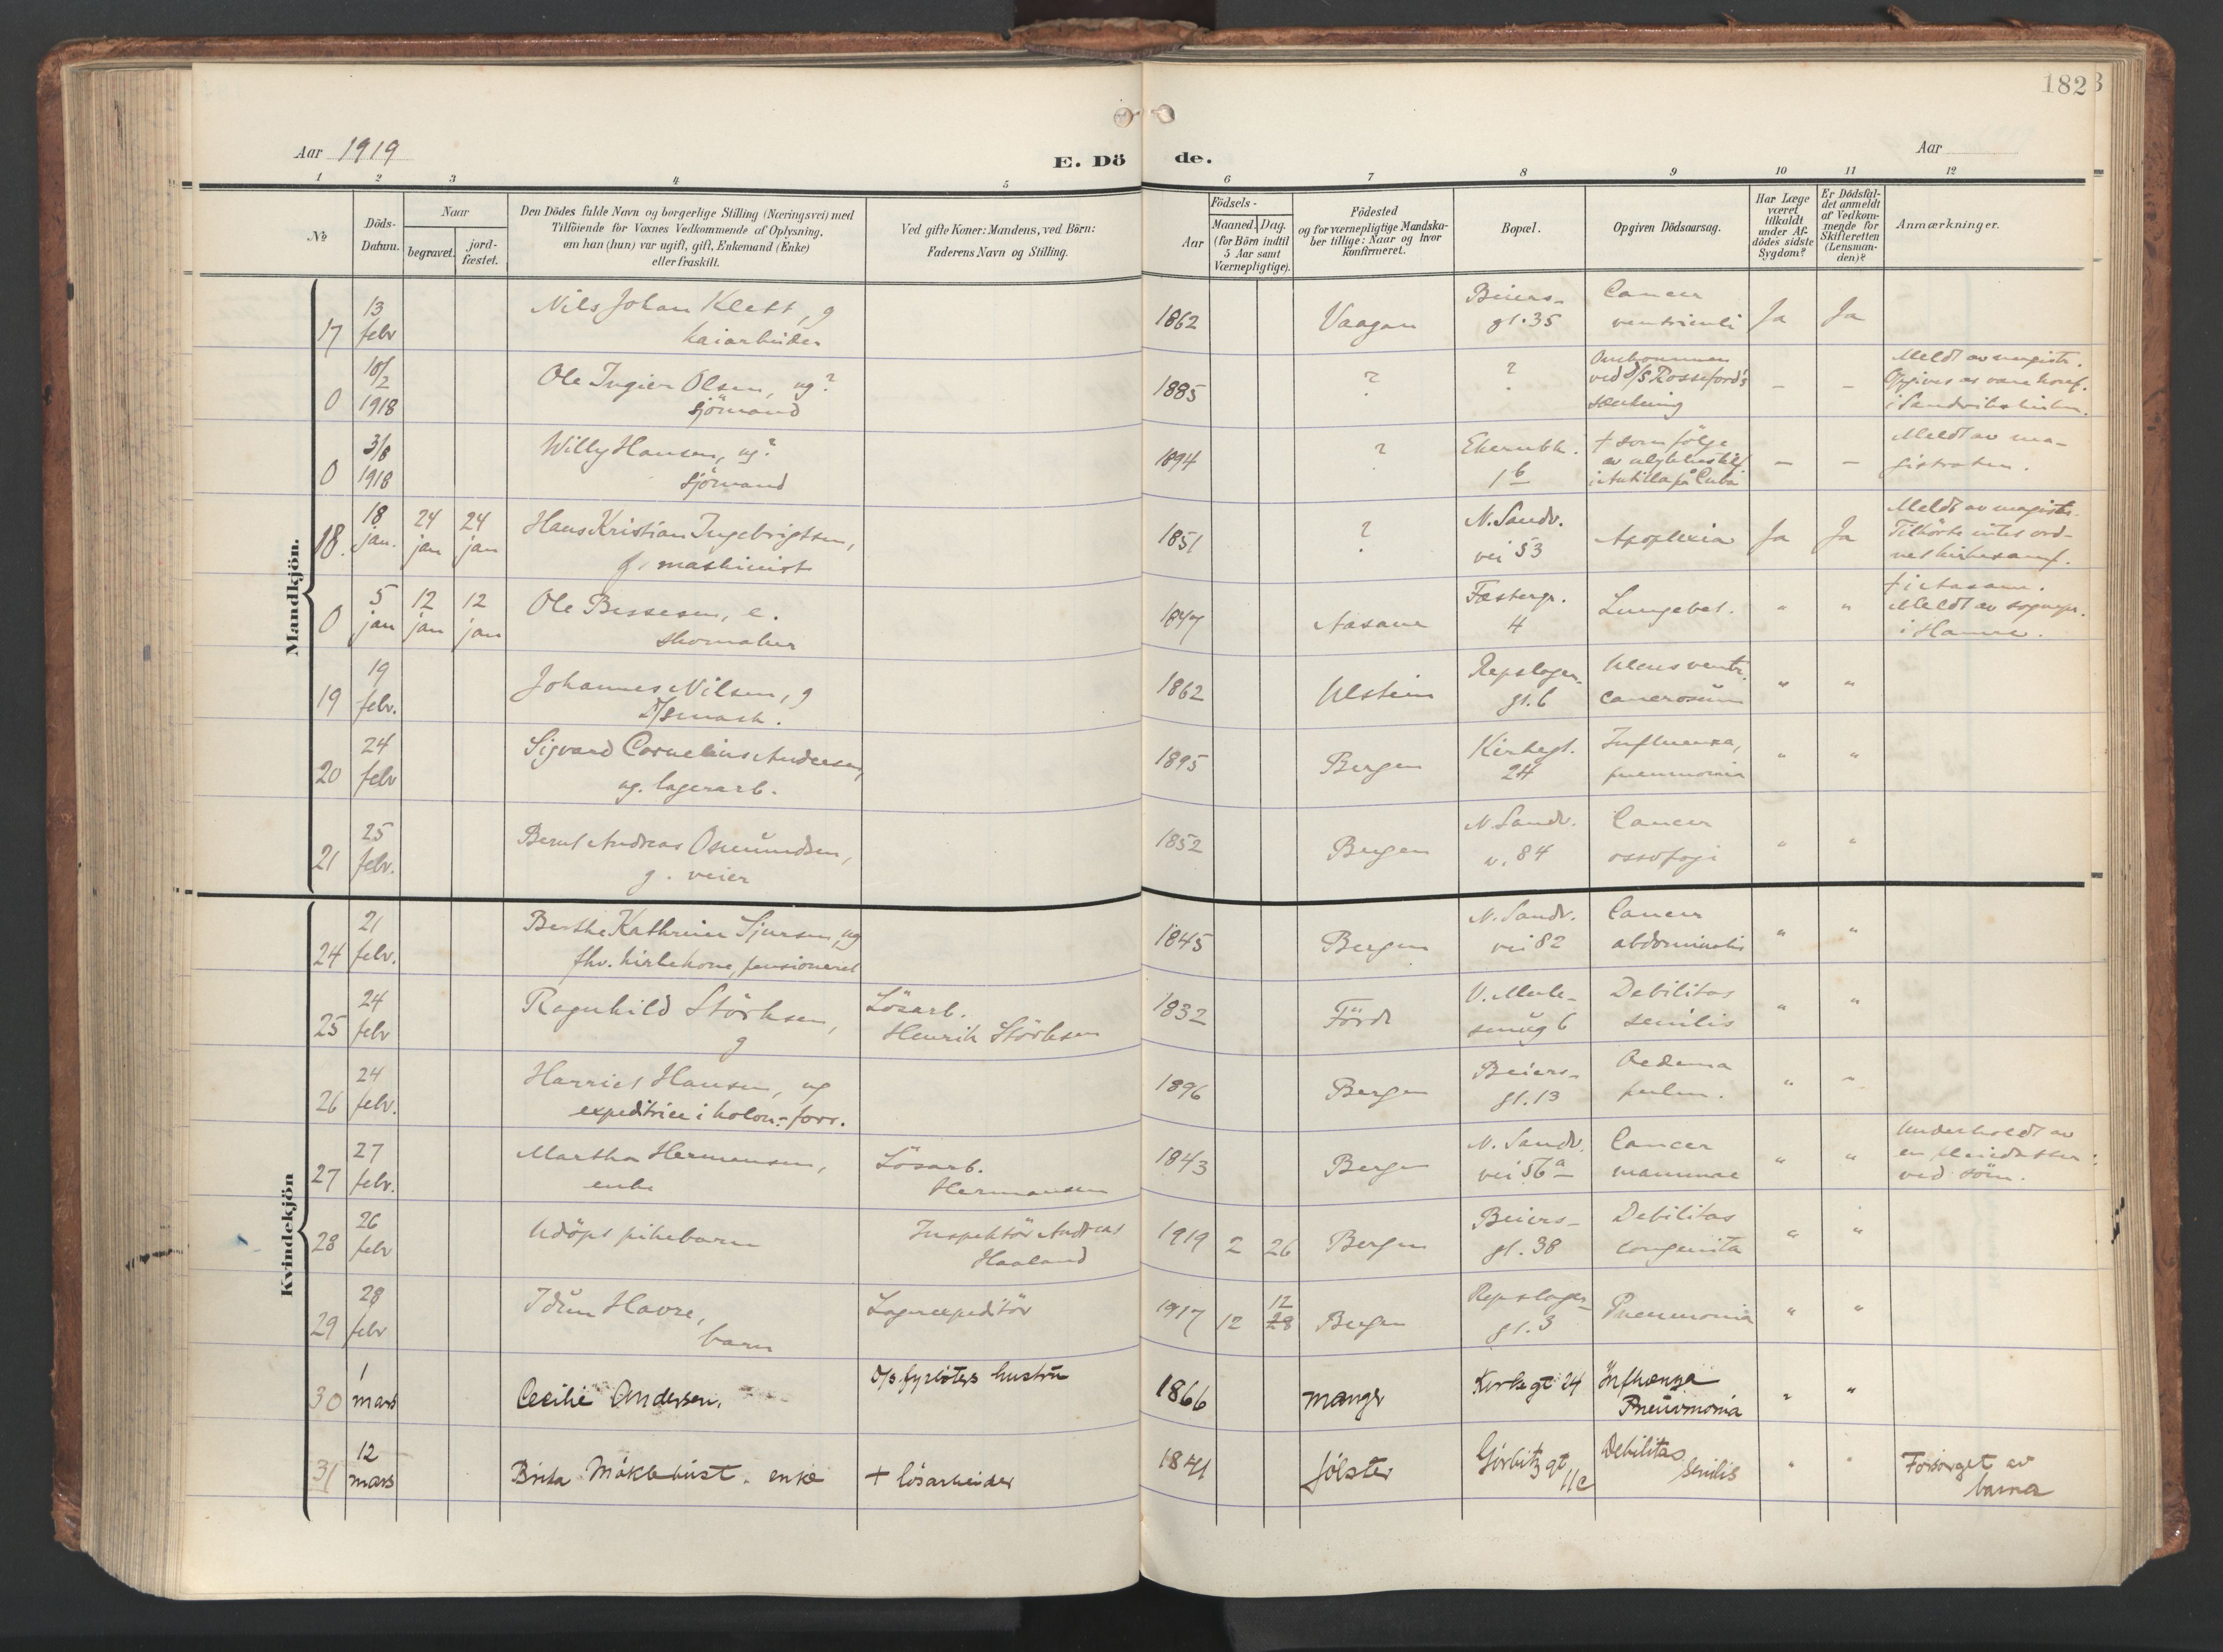 182
Aar 1919
E. Dö de.
Aar
1 2 3 4 5 6 7 8 9 10 11 12
№
Döds-
Datum.
Naar
begravet.
jord-
fæstet.
Den Dödes fulde Navn og borgerlige Stilling (Næringsvei) med
Tilföiende for Voxnes Vedkommende af Oplysning,
om han (hun) var ugift, gift, Enkemand (Enke)
eller fraskilt.
Ved gifte Koner: Mandens, ved Börn:
Faderens Navn og Stilling.
Födsels-
Aar
Maaned. Dag.
(for Börn indtil
5 Aar samt
Værnepligtige).
Födested
og for værnepligtige Mandska-
ber tillige: Naar og hvor
konfirmeret.
Bopæl.
Opgiven Dödsaarsag.
Har Læge
været
tilkaldt
under Af-
dödes sidste
Sygdom?
Er Dödsfal-
det anmeldt
af Vedkom-
mende for
Skifteretten
(Lensman-
den)?
Anmærkninger.
Mandkjön.
17 13 febr
Nils Johan Klett, g
kaiarbeider
1862 Vaagan
Beiers-
gt. 35
Cancer
ventriculi
Ja Ja
0 10/2 1918
Ole Ingier Olsen, ug?
sjömand
1885 ? ?
Omkommen
ved D/S Rossefords
sænkning
– –
Meldt av magistr.
Opgives at være
0 3/8 1918
Willy Hansen, ug?
sjömand
1894 ?
1 b
† som följe
av ulykkestilf
i Antilla på Cuba
– –
Meldt av ma-
gistraten.
18. 18 jan. 24 jan 24 jan
Hans Kristian Ingebrigtsen,
g, maskinist
1851 ?
N. Sandv.
vei 53
Apoplexia
Ja Ja
Meldt av magistr.
Tilhörte intet ord-
net kirkesamf.
0 5 jan 12 jan 12 jan
Ole Bessesen, e.
skomaker
1847 Aasane
Fæstergr.
4
Lungebet.
" "
† i Aasane.
Meldt av sognepr.
i Hamre.
19 19 febr.
Johannes Nilsen, g
D/Smask.
1862 Ulstein
Repslager-
gt. 6
Ulcus ventr.
cancrosum
" "
20 24 febr
Sigvard Cornelius Andersen,
ug. lagerarb.
1895 Bergen
Kirkegt.
24
Influenza,
pneumonia
" "
21 25 febr.
Bernt Andreas Osmundsen,
g. veier
1852 Bergen
N. Sandv.
v. 84
Cancer
ossofogi
" "
Kvindekjön
24 21 febr.
Berthe Kathrine Sjursen, ug
fhv. kirkekone, pensioneret
1845 Bergen
N. Sandv.
vei 82
Cancer
abdominalis
" "
25 24 febr
Ragnhild Störksen,
g
Lösarb.
Henrik Störksen
1832 Förde
smug 6
Debilitas
senilis
" "
26 24 febr.
Harriet Hansen, ug
expeditrice i kolon.-forr.
1896 Bergen
Beiers-
gt. 13
Oedema
pulm.
" "
27 27 febr.
Martha Hermansen,
enke
Lösarb.
Hermansen
1843 Bergen
N. Sandv.
vei 56 a
Cancer
mammae
" "
Underholdt av
ved söm.
28 26 febr
Udöpt pikebarn
Inspektör Andreas
Haaland
1919 2 26 Bergen
Beiers-
gt. 38
Debilitas
congenita
" "
29 28 febr
Idun Havre,
barn
Lagerexpeditör
1917 12 12 28 Bergen
Repslager-
gt. 3
Pneumonia
" "
30 1 mars
Cecilie Andersen.
D/S fyrböters hustru
1866 Manger
Kirkegt 24
Influenza
Pneumonia
" "
31 12 mars
Brita Möklebust. enke
+ lösarbeider
1841 Jölster
Görbitz gt
11c
Debilitas
senilis
" "
Forsørget av
barna